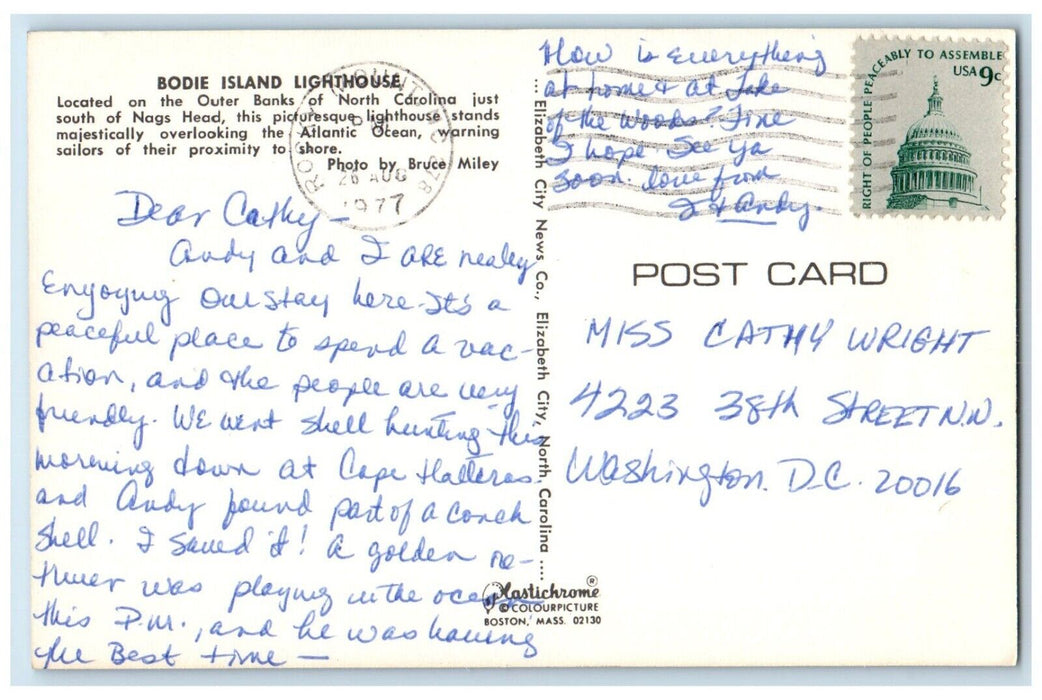 BODIE ISLAND LIGHTHOUSE
Located on the Outer Banks of North Carolina just
south of Nags Head, this picturesque lighthouse stands
majestically overlooking the Atlantic Ocean, warning
sailors of their proximity to shore.
Photo by Bruce Miley
ROCKY MOUNT, N.C. 278
PM
26 AUG
1977
Dear Cathy –
Andy and I are realy
Enyoying our stay here. It's a
peaceful place to spend a vac-
ation, and the people are very
friendly. We went shell hunting this
morning down at Cape Hatteras
and Andy found part of a conch
shell. I saved it! A golden re-
triever was playing in the ocean
this P.M., and he was having
the Best time –
How is everything
at home & at Lake
of the Woods? Fine
I hope. See ya
soon. love from
& Andy.
... Elizabeth City News Co., Elizabeth City, North Carolina ....
RIGHT OF PEOPLE PEACEABLY TO ASSEMBLE
USA 9c
POST CARD
MISS CATHY WRIGHT
4223 38th STREET N.W.
Washington. D.C. 20016
Plastichrome ®
© COLOURPICTURE
BOSTON, MASS. 02130